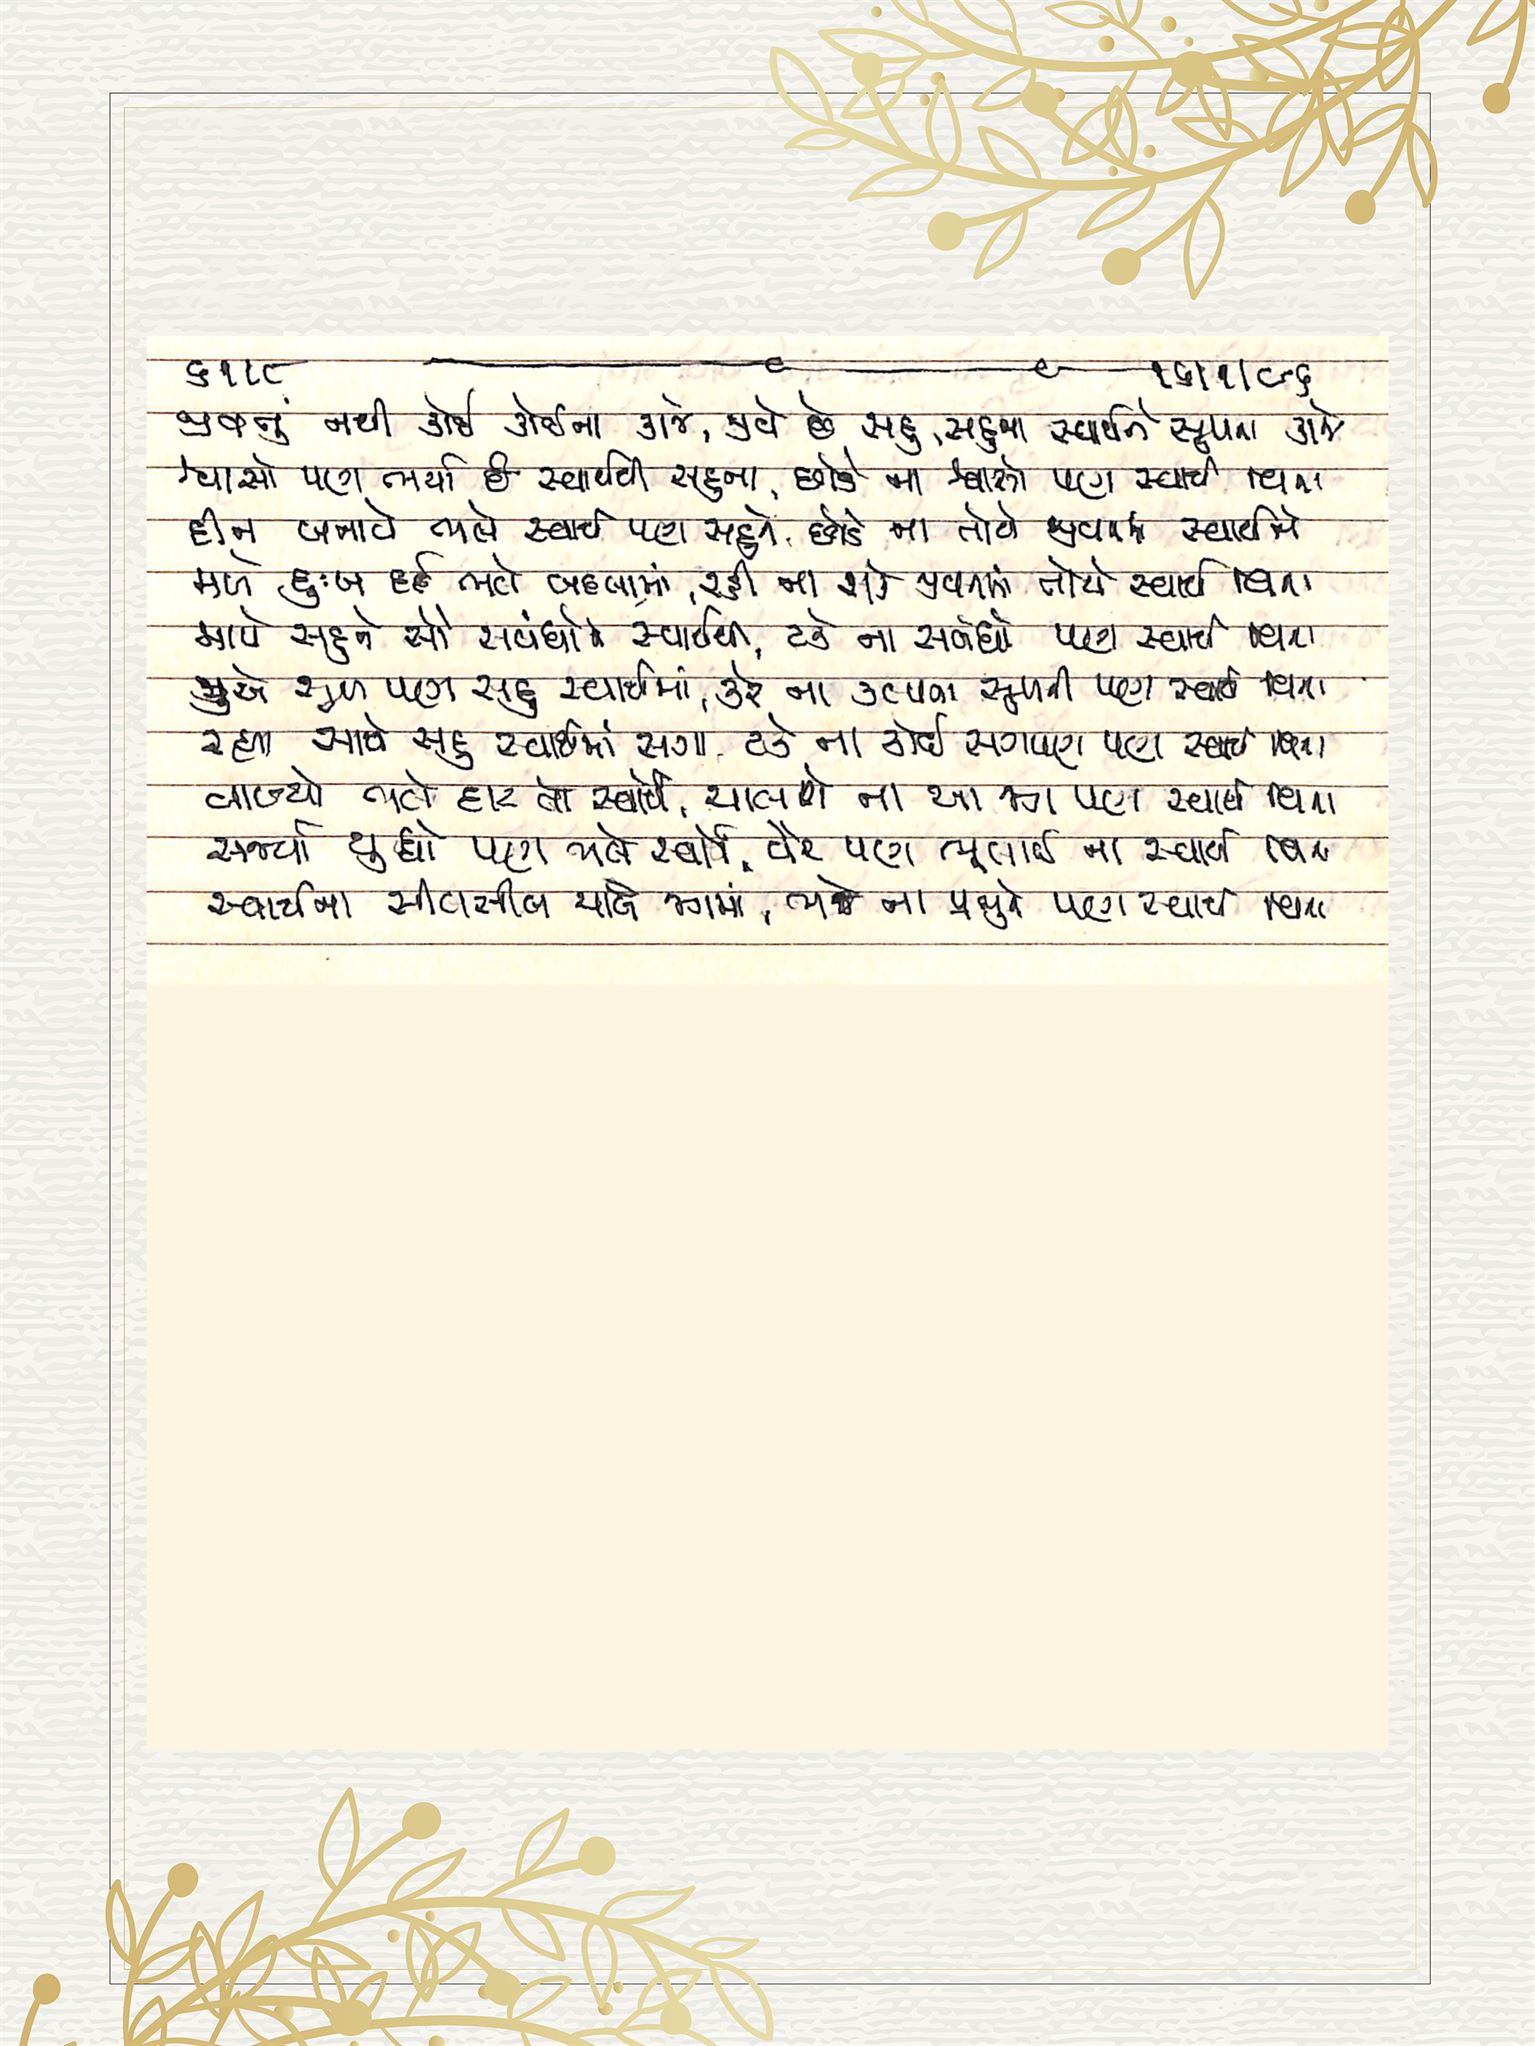 ૬૧૮૮ ૧૬/૧/૮૬
જીવનનું નથી કોઈ કોઈના કાજે, જીવે છે સહુ, સહુના સ્વાર્થને સાધવા કાજે
શ્વાસો પણ ભર્યા છે સ્વાર્થથી સહુના, છોડે ના શ્વાસો પણ સ્વાર્થ વિના
હીન બનાવે ભલે સ્વાર્થ પણ સહુને, છોડે ના તોયે જીવનમાં સ્વાર્થને
મળે દુઃખ દર્દ ભલે બદલામાં, રહી ના શકે જીવનમાં તોયે સ્વાર્થ વિના
માપે સહુને સૌ સંબંધોને સ્વાર્થથી, ટકે ના સંબંધો પણ સ્વાર્થ વિના
જુએ પણ સહુ સ્વાર્થમાં, કરે ના કલ્પના સુખની પણ સ્વાર્થ વિના
રહ્યા સાથે સહુ સ્વાર્થમાં સગા, ટકે ના કોઈ સગપણ પણ સ્વાર્થ વિના
લાગ્યો ભલે હાર તો સ્વાર્થે, ચાલશે ના આ જગ પણ સ્વાર્થ વિના
સર્જ્યાં યુદ્ધો પણ ભલે સ્વાર્થે, વેર પણ ભૂલાઈ ના સ્વાર્થ વિના
સ્વાર્થના સીલસીલા ચાલે જગમાં, ભજે ના પ્રભુને પણ સ્વાર્થ વિના